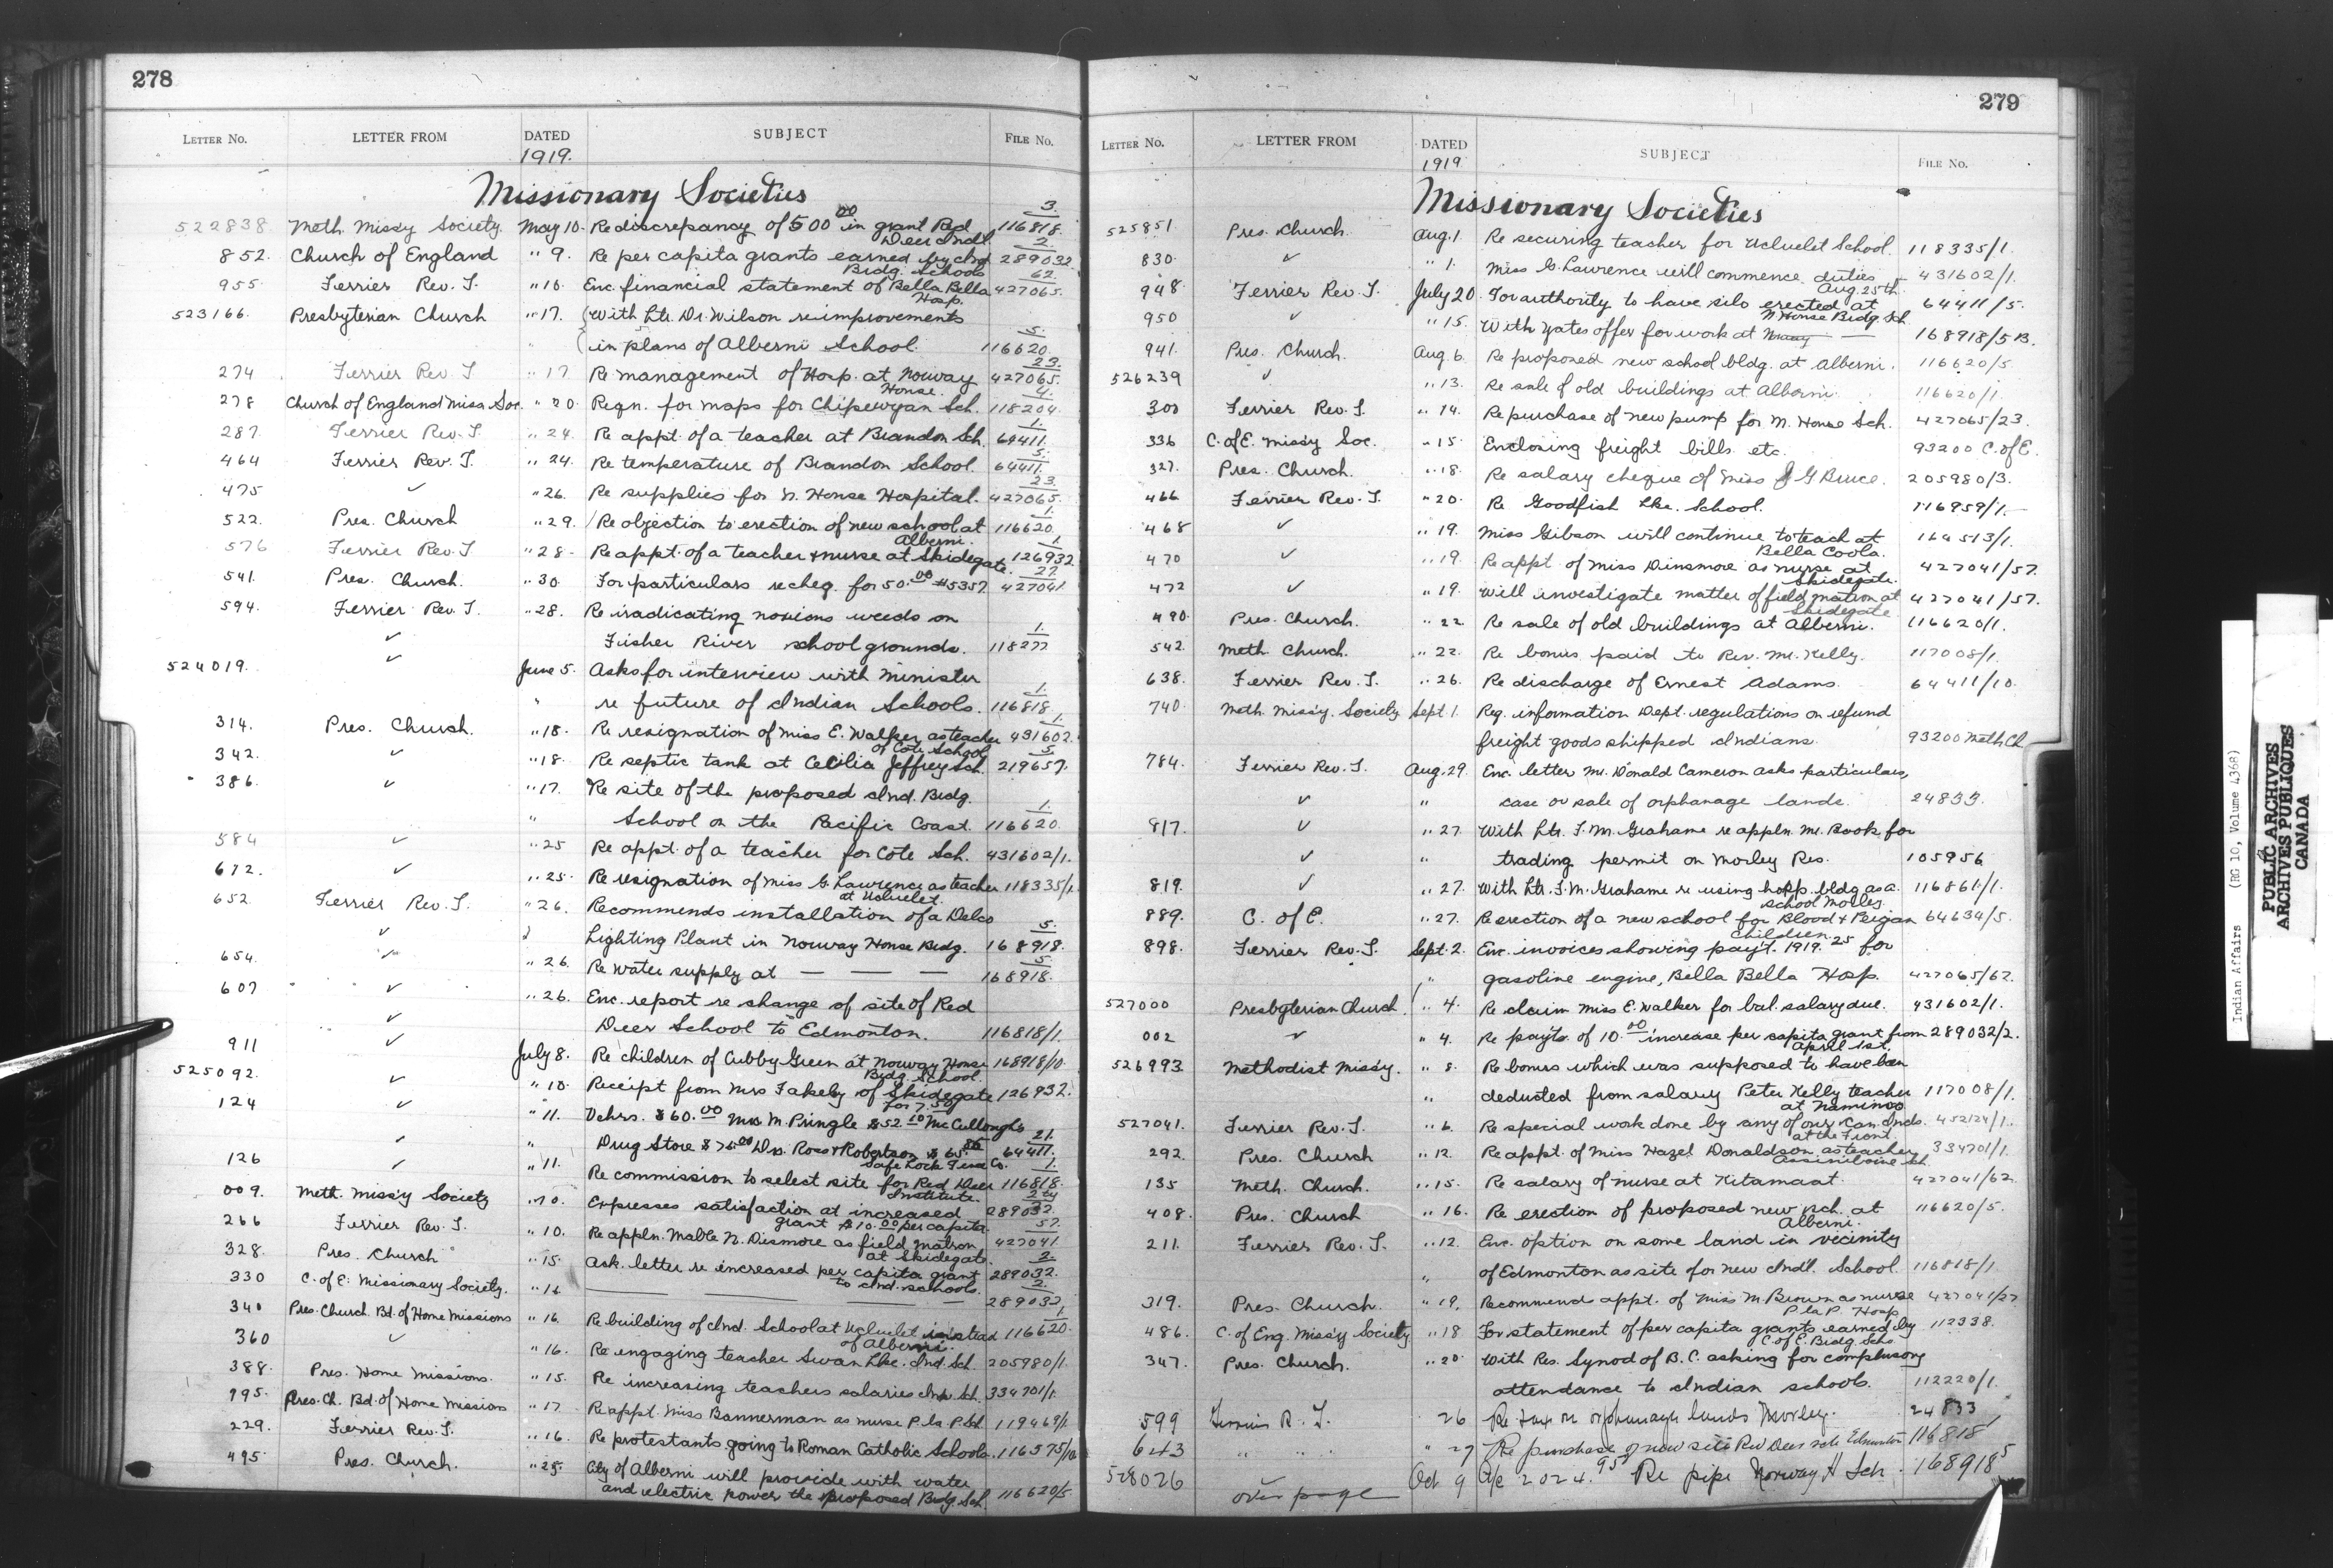 278
LETTER NO. LETTER FROM DATED SUBJECT FILE NO.
1919.
Missionary Societies
522838 Meth. Miss'y Society. May 10. Re discrepancy of 500 00 in grant Red Deer Indl. 116818/3.
852. Church of England " 9. Re per capita grants earned by Ind. Brdg. Schools 289032/2.
955. Ferrier Rev. T. " 16. Enc. financial statement of Bella Bella Hosp. 427065/62.
523166. Presbyterian Church " 17. With Ltr. Dr. Wilson re improvements
in plans of Alberni School. 116620/5.
274 Ferrier Rev. T " 17 Re management of Hosp. at Norway House. 427065/23.
278 Church of England Miss. Soc. " 20. Reqn. for maps for Chipewyan Sch. 118204/4.
287. Ferrier Rev. T. " 24. Re appt. of a teacher at Brandon Sch. 64411/1.
464 Ferrier Rev. T. " 24. Re temperature of Brandon School. 64411/5.
475 ✓ " 26. Re supplies for N. House Hospital. 427065/23.
522. Pres. Church " 29. Re objection to erection of new school at Alberni. 116620/1.
576 Ferrier Rev. T. " 28. Re appt. of a teacher & nurse at Skidegate. 126932/1.
541. Pres. Church. " 30. For particulars re cheq. for 50.00 #5357. 427041/27.
594. Ferrier Rev. T. " 28. Re iradicating noxious weeds on
✓ Fisher River school grounds. 118277/1.
524019. ✓ June 5. Asks for interview with Minister
" re future of Indian Schools. 116818/1.
314. Pres. Church. " 18. Re resignation of Miss E. Walker as teacher of Cote School 431602/1.
342. ✓ " 18. Re septic tank at Cecilia Jeffrey Sch. 219657/5.
386. ✓ " 17. Re site of the proposed Ind. Brdg.
" School on the Pacific Coast. 116620/1.
584 ✓ " 25 Re appt. of a teacher for Cote Sch. 431602/1.
672. ✓ " 25. Re resignation of Miss G. Lawrence as teacher at Ucluelet. 118335/1.
652. Ferrier Rev. T. " 26. Recommends installation of a Delco
✓ Lighting Plant in Norway House Brdg. 168918/5.
654. ✓ " 26. Re water supply at — — — 168918/5.
607 ✓ " 26. Enc. report re change of site of Red
✓ Deer School to Edmonton. 116818/1.
911 ✓ July 8. Re children of Cubby Green at Norway House Brdg. School. 168918/10.
525092. ✓ " 10. Receipt from Mrs Fakeley of Skidegate for 7.50 126932.
124 ✓ " 11. Vchrs. $60.00 Mrs M. Pringle $52.10 McCullough's
✓ " Drug Store $75.00 Drs. Ross & Robertson $65.86 Safe Lock Fence Co. 64411/21.
126 ✓ " 11. Re commission to select site for Red Deer Institute. 116818/1.
009. Meth. Miss'y Society " 10. Expresses satisfaction at increased grant $10.00 per capita. 289032/2
266 Ferrier Rev. T. " 10. Re appln. Mable N. Dinsmore as field matron at Skidegate. 427041/57.
328. Pres. Church " 15. Ask. letter re increased per capita grant to Ind. schools. 289032/2.
330 C. of E. Missionary Society. " 16 — — — — 289032/2.
340 Pres. Church. Bd. of Home Missions " 16. Re building of Ind. School at Ucluelet instead of Alberni. 116620/1.
360 ✓ " 16. Re engaging teacher Swan Lke. Ind. Sch. 205980/1.
388. Pres. Home Missions. " 15. Re increasing teachers salaries Ind. Sch. 334701/1.
195. Pres. Ch. Bd. of Home Missions " 17 Re appt. Miss Bannerman as nurse P. la. P. Sch. 119469/1.
229. Ferrier Rev. T. " 16. Re protestants going to Roman Catholic Schools. 116575/1
495 Pres. Church. " 25. City of Alberni will provide with water
and electric power the proposed Brdg. Sch. 116620/5.
279
LETTER NO. LETTER FROM DATED SUBJECT FILE NO.
1919
Missionary Societies
525851 Pres. Church. Aug. 1. Re securing teacher for Ucluelet School. 118335/1.
830. ✓ " 1. Miss G. Lawrence will commence duties Aug. 25th. 431602/1.
948. Ferrier Rev. T. July 20. For authority to have silo erected at N. House Brdg. Sch 64411/5.
950 ✓ " 15. With Yates offer for work at Norway — 168918/5 B.
941. Pres. Church. Aug. 6. Re proposed new school bldg. at Alberni. 116620/5.
526239 ✓ " 13. Re sale of old buildings at Alberni. 116620/1.
300 Ferrier Rev. T. " 14. Re purchase of new pump for N. House Sch. 427065/23.
336 C. of E. Missy Soc. " 15 Enclosing freight bills etc. 93200 C. of E.
327. Pres. Church. " 18. Re salary cheque of Miss J G Bruce. 205980/3.
466 Ferrier Rev. T. " 20. Re Goodfish Lke. School. 116959/1.
468 ✓ " 19. Miss Gibson will continue to teach at Bella Coola. 164513/1.
470 ✓ " 19. Re appt. of Miss Dinsmore as nurse at Skidegate. 427041/57.
472 ✓ " 19. Will investigate matter of field matron at Skidegate 427041/57.
490. Pres. Church. " 22 Re sale of old buildings at Alberni. 116620/1.
542. Meth. Church. " 22. Re bonus paid to Rev. Mr. Kelly. 117008/1.
638. Ferrier Rev. T. " 26. Re discharge of Ernest Adams. 64411/10.
740. Meth. Miss'y. Society Sept. 1. Reg. information Dept. regulations on refund
freight goods shipped Indians. 93200 Meth. Ch.
784. Ferrier Rev. T. Aug. 29. Enc. letter Mr. Donald Cameron asks particulars,
✓ " case or sale of orphanage lands. 24833.
817. ✓ " 27. With Ltr. T. M. Grahame re appln. Mr. Book for
✓ " trading permit on Morley Res. 105956
819. ✓ " 27. With Ltr. T. M. Grahame re using hosp. bldg as a school Morley. 116861/1.
889. C. of E. " 27. Re erection of a new school for Blood & Peigan Children. 64634/5.
898. Ferrier Rev. T. Sept. 2. Enc. invoices showing pay't. 1919.25 for
" gasoline engine, Bella Bella Hosp. 427065/62.
527000 Presbyterian Church " 4. Re claim Miss E. Walker for bal. salary due. 431602/1.
002 ✓ " 4. Re pay'ts. of 10.00 increase per capita grant from April 1st. 289032/2.
526993 Methodist Miss'y. " 8. Re bonus which was supposed to have been
" deducted from salary Peter Kelly teacher at Naminoo 117008/1.
527041. Ferrier Rev. T. " 6. Re special work done by any of our Can. Inds. at the Front. 452124/1.
292. Pres. Church " 12. Re appt. of Miss Hazel Donaldson as teacher Assiniboine Sch. 334701/1.
135 Meth. Church. " 15. Re salary of nurse at Kitamaat. 427041/62.
408. Pres. Church " 16. Re erection of proposed new sch. at Alberni. 116620/5.
211. Ferrier Rev. T. " 12. Enc. option on some land in vicinity
" of Edmonton as site for new Indl. School. 116818/1
319. Pres. Church. " 19. Recommends appt. of Miss M. Brown as nurse P. la P. Hosp. 427041/27
486. C. of Eng. Miss'y Society " 18 For statement of per capita grants earned by C. of E. Brdg. Schs. 112338.
347. Pres. Church. " 20 With Res. Synod of B. C. asking for complusory
attendance to Indian schools. 112220/1.
599 Ferrier R. T. 26 Re tax on orphanage lands Morley. 24833
643 " " " 27 Re purchase of new site Red Deer sch Edmonton 116818
528026 Oct 9 a/c 2024.95 Re pipe Norway H Sch. 168918/5
over page
Indian Affairs (RG 10, Volume 4368)
PUBLIC ARCHIVES
ARCHIVES PUBLIQUES
CANADA